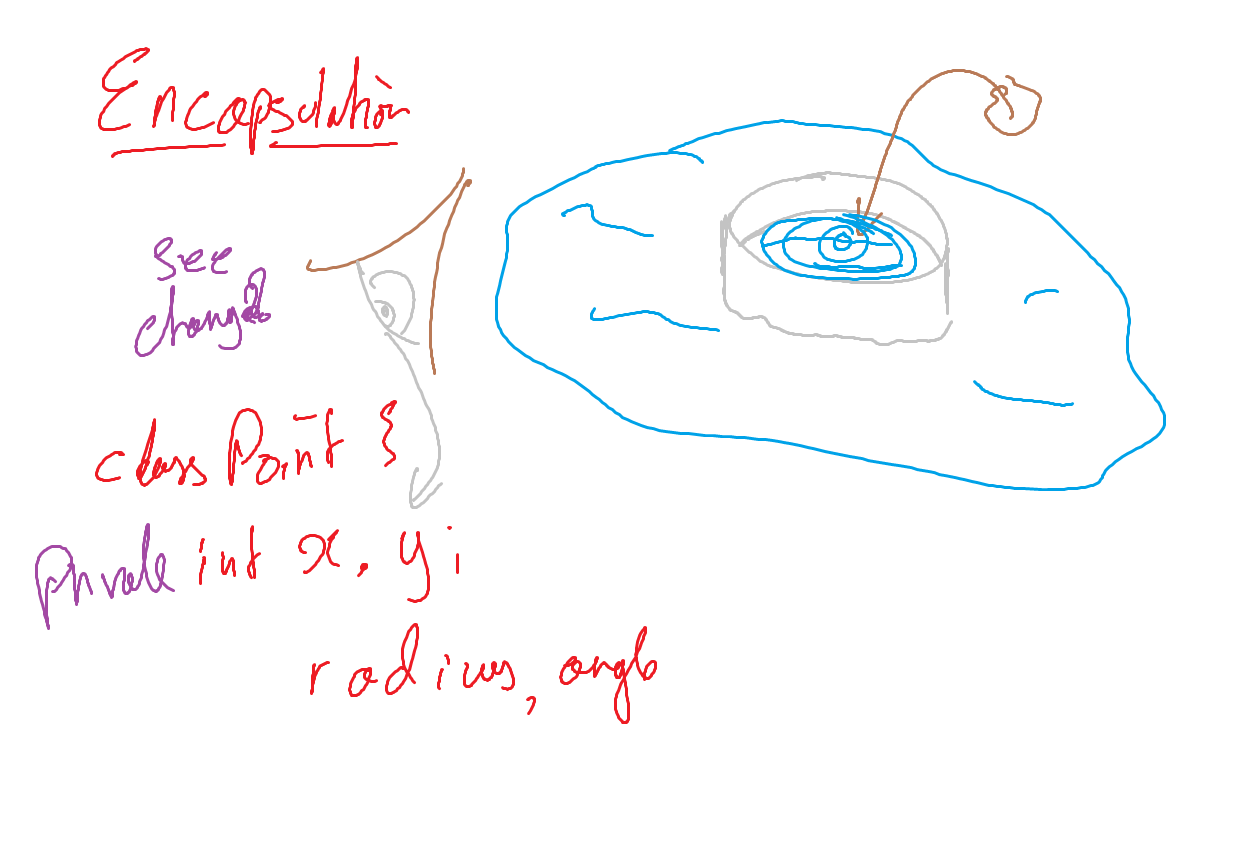 Encapsulation
see
change?
class Point {
private int x, y;
radius, angle